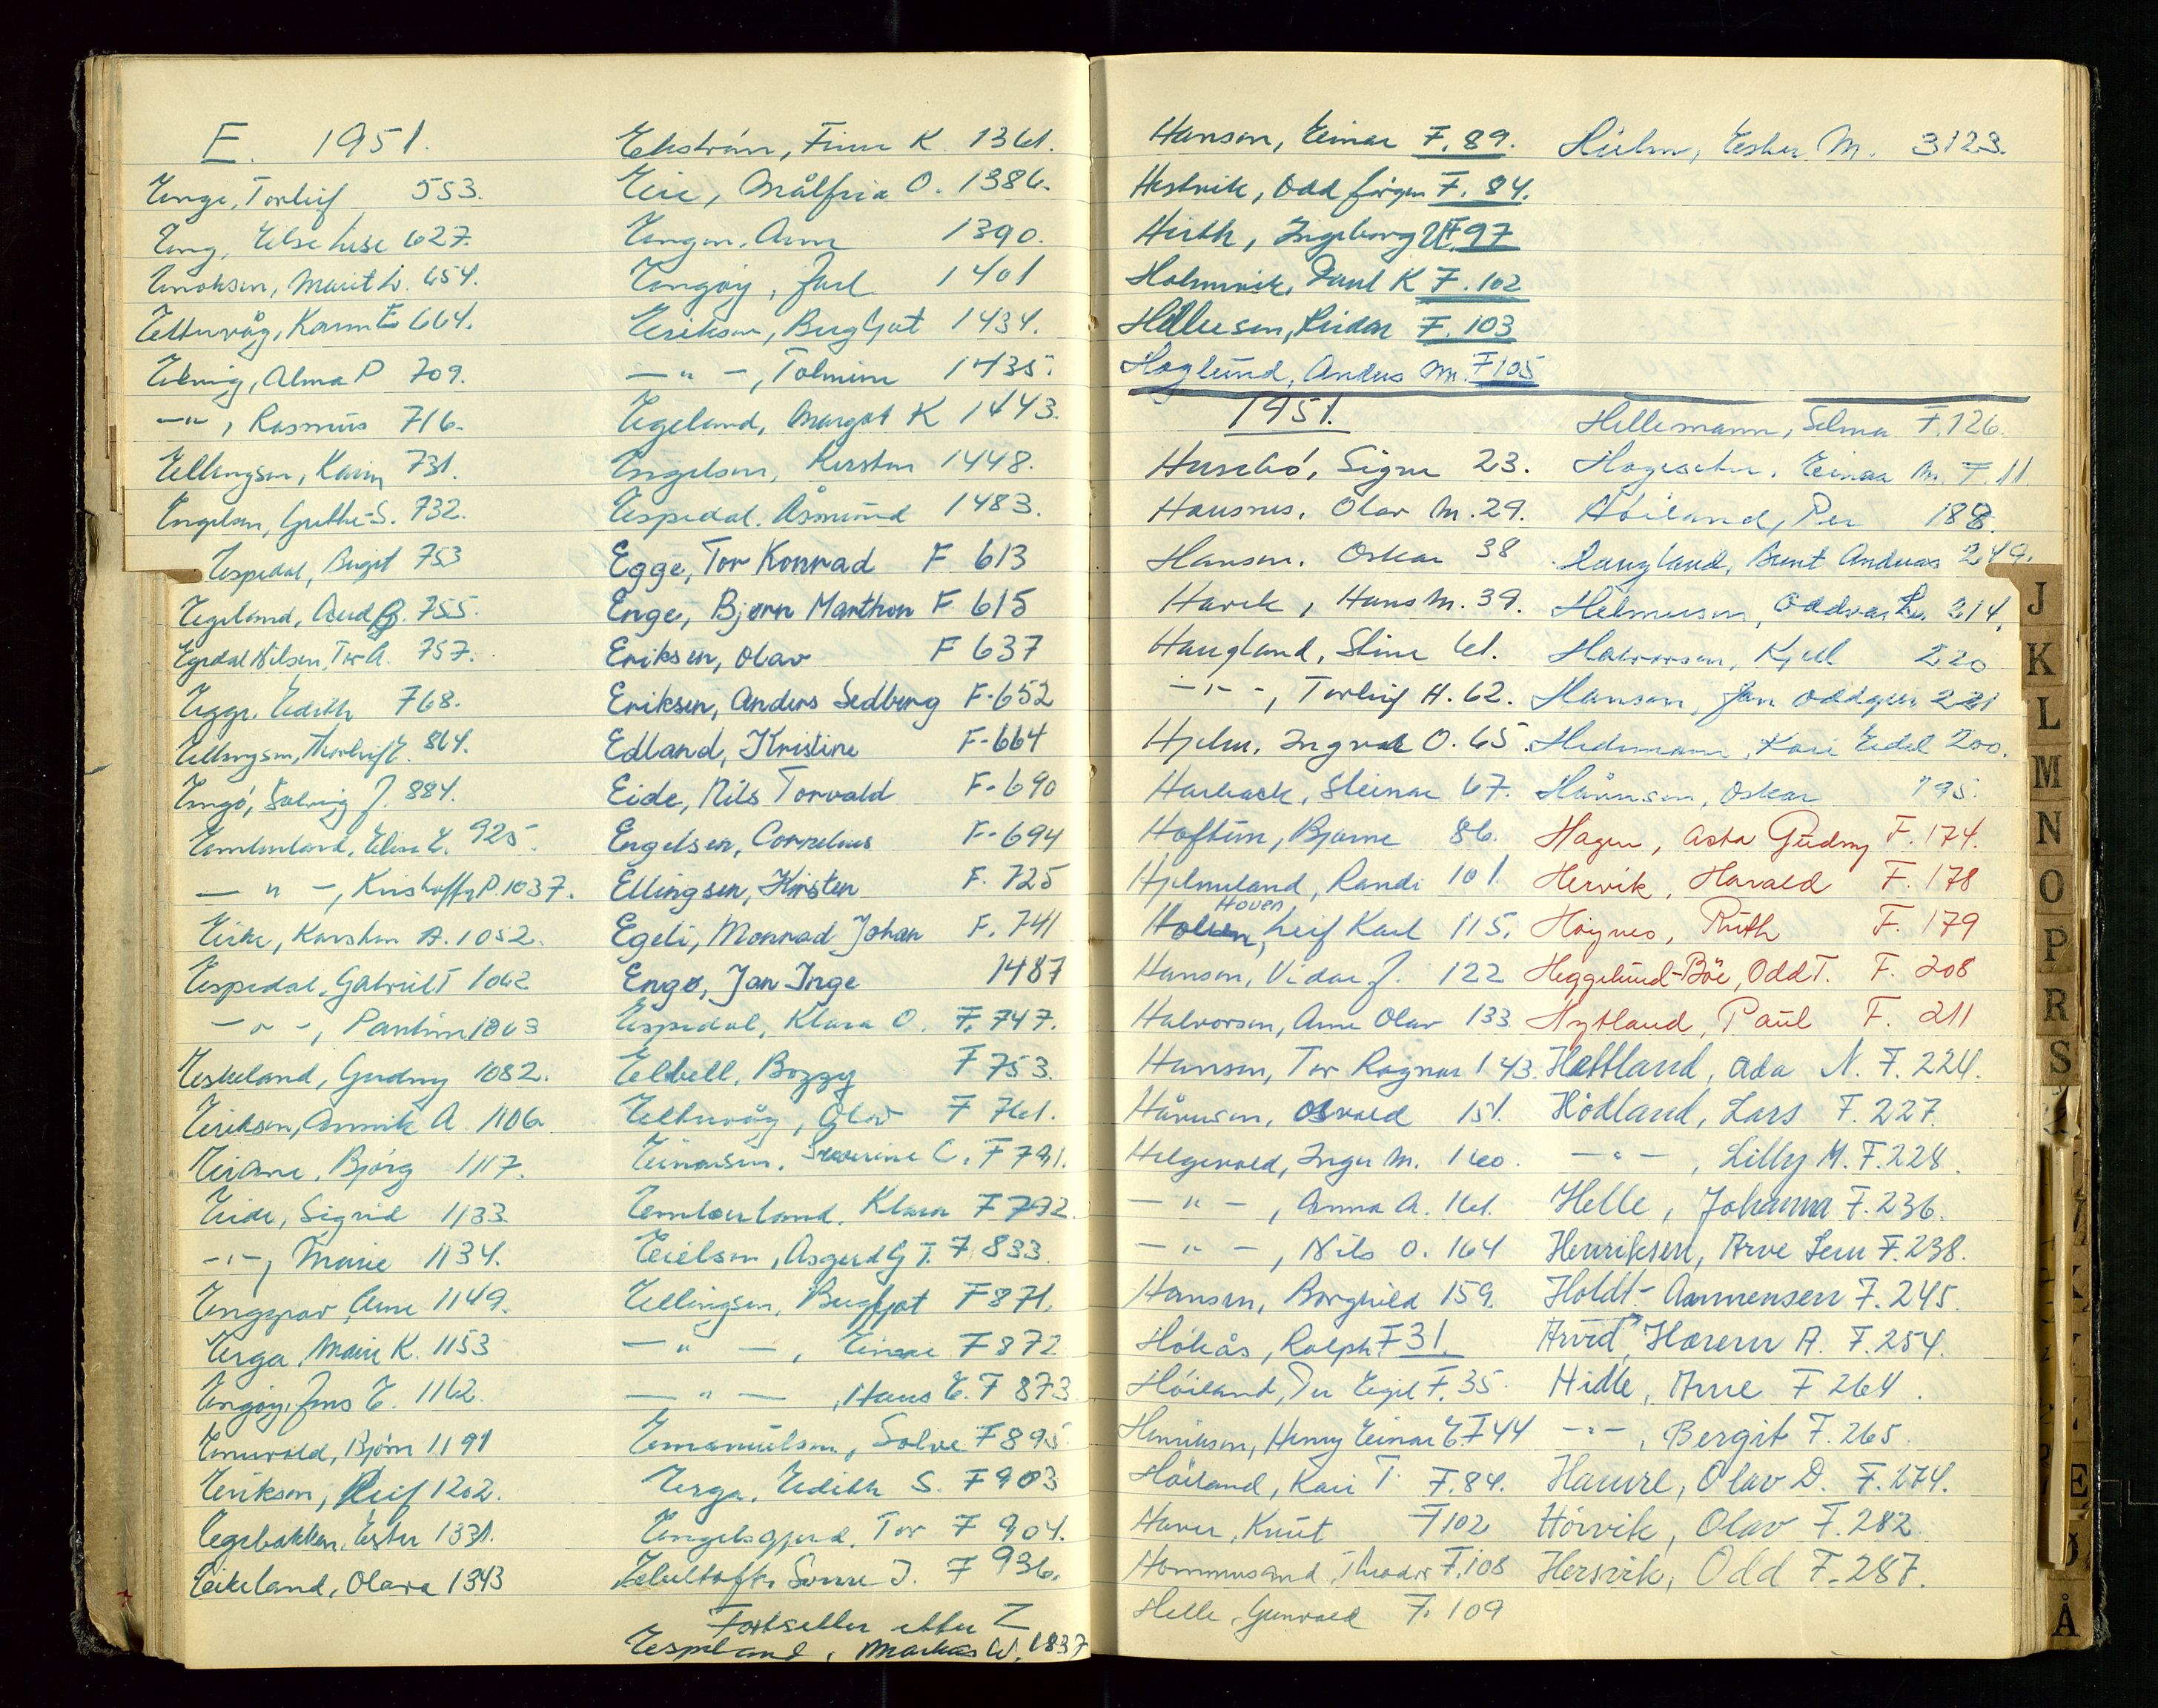 E. 1951.
Enge, Torleif 553.
Eng, Else Lise 627.
Enoksen, Marit L. 654.
Eltervåg, Karin E 664.
Elvnig, Alma P 709.
—"—, Rasmus 716.
Ellingsen, Karin 731.
Engelsen, Grethe S. 732.
Espedal, Birgit 753
Egeland, Aud G. 755.
Egedal Nilsen, Tor A. 757.
Egge, Edith 768.
Ellingsen, Thorleif E. 864.
Engø, Solveig J. 884.
Emberland, Elise E. 925.
—"—, Kristoffer P. 1037.
Eike, Karsten A. 1052.
Espedal, Gabriel T 1062
—"—, Pauline 1063
Eskeland, Gudny 1082.
Eriksen, Annvik A. 1106
Eirane, Bjørg 1117.
Eide, Sigrid 1133.
—"—, Marie 1134.
Enggrav, Arne 1149.
Erga, Marie K. 1153
Engøy, Jens E. 1162.
Enevold, Bjørn 1191
Eriksen, Leif 1202.
Egebakken, Ester 1331.
Eikeland, Olava 1343
Ekström, Finn K. 1361.
Eie, Målfrid O. 1386.
Engen, Arne 1390.
Engøy, Jarl 1401
Eriksen, Bergljot 1434.
—"—, Tolmine 1435.
Egeland, Margot K 1443.
Engelsen, Kirsten 1448.
Espedal, Åsmund 1483.
Egge, Tor Konrad F 613
Enge, Bjørn Marthon F. 615
Eriksen, Olav F 637
Eriksen, Anders Sedberg F-652
Edland, Kristine F-664
Eide, Nils Torvald F-690
Engelsen, Cornelius F-694
Ellingsen, Kirsten F. 725
Egeli, Monrad Johan F. 741
Engø, Jan Inge 1487
Espedal, Klara O. F. 747.
Elbell, Bozzy F 753.
Eltervåg, Olav F 761.
Einarsen, Severine C. F 791.
Emberland, Klara F 792.
Eielsen, Asgerd G T. F 833.
Ellingsen, Bergljot F 871.
—"—, Einar F 872
—"—, Hans E. F 873
Emanuelsen, Solve F 895
Erga, Edith S. F 903
Engelsgjerd, Tor F 904.
Ebeltoft, Sonne J. F 936.
Fortsetter etter Z
Espeland, Markus W. 1837
Hansen, Einar F. 89.
Hestvik, Odd Jørgen F. 84.
Hirth, Ingeborg F. 97
Holmevik, Paul K F. 102
Hillesen, Reidar F. 103
Høglund, Anders M. F 105
Hülm, Ester M. 3123.
1951.
Husebø, Signe 23.
Hausnes, Olav M. 29.
Hansen, Oskar 38
Harek, Hans M. 39.
Haugland, Stine 61.
—"—, Torleif H. 62.
Hjelm, Ingvald O. 65.
Harbæck, Steinar 67.
Hoftun, Bjarne 86.
Hjelmeland, Randi 101.
Hoven
Holsen, Leif Karl 115.
Hansen, Vidar J. 122
Halvorsen, Arne Olav 133
Hansen, Tor Ragnar 143.
Håvesen, Osvald 151.
Helgevold, Inger M. 160.
—"—, Anna A. 161.
—"—, Nils O. 164
Hansen, Borghild 159.
Høkås, Ralph F 31.
Høiland, Per Egil F. 35.
Henriksen, Henry Einar E. F 44
Høiland, Kari T. F. 84.
Haver, Knut F 102
Hommersand, Theodor F. 108
Helle, Gunvald F. 109
Hellemann, Selma F. 126.
Hageseter, Einar M. F. 11
Høiland, Per 188.
Haugland, Bernt Andreas 249.
Helmersen, Oddvar L. 214.
Halvorsen, Kjell 220
Hansen, Jan Oddgeir 221
Hedemann, Kari Eidel 200.
Håvesen, Oskar 195.
Hagen, Asta Gudny F. 174.
Hervik, Harald F. 178
Høynes, Ruth F. 179
Heggelund-Böe, Odd T. F. 208
Hytland, Paul F. 211
Hattland, Ada N. F. 224.
Hødland, Lars F. 227.
—"—, Lilly M. F. 228.
Helle, Johanna F. 236.
Henriksen, Arve Lem F. 238.
Holdt-Ammensen F. 245.
Arvid, Hærem A. F. 254.
Hidle, Arne F 264.
—"—, Bergit F. 265.
Hamre, Olav D. F. 274.
Hørvik, Olav F. 282
Hersvik, Odd F. 287.
J
K
L
M
N
O
P
R
S
E
Å